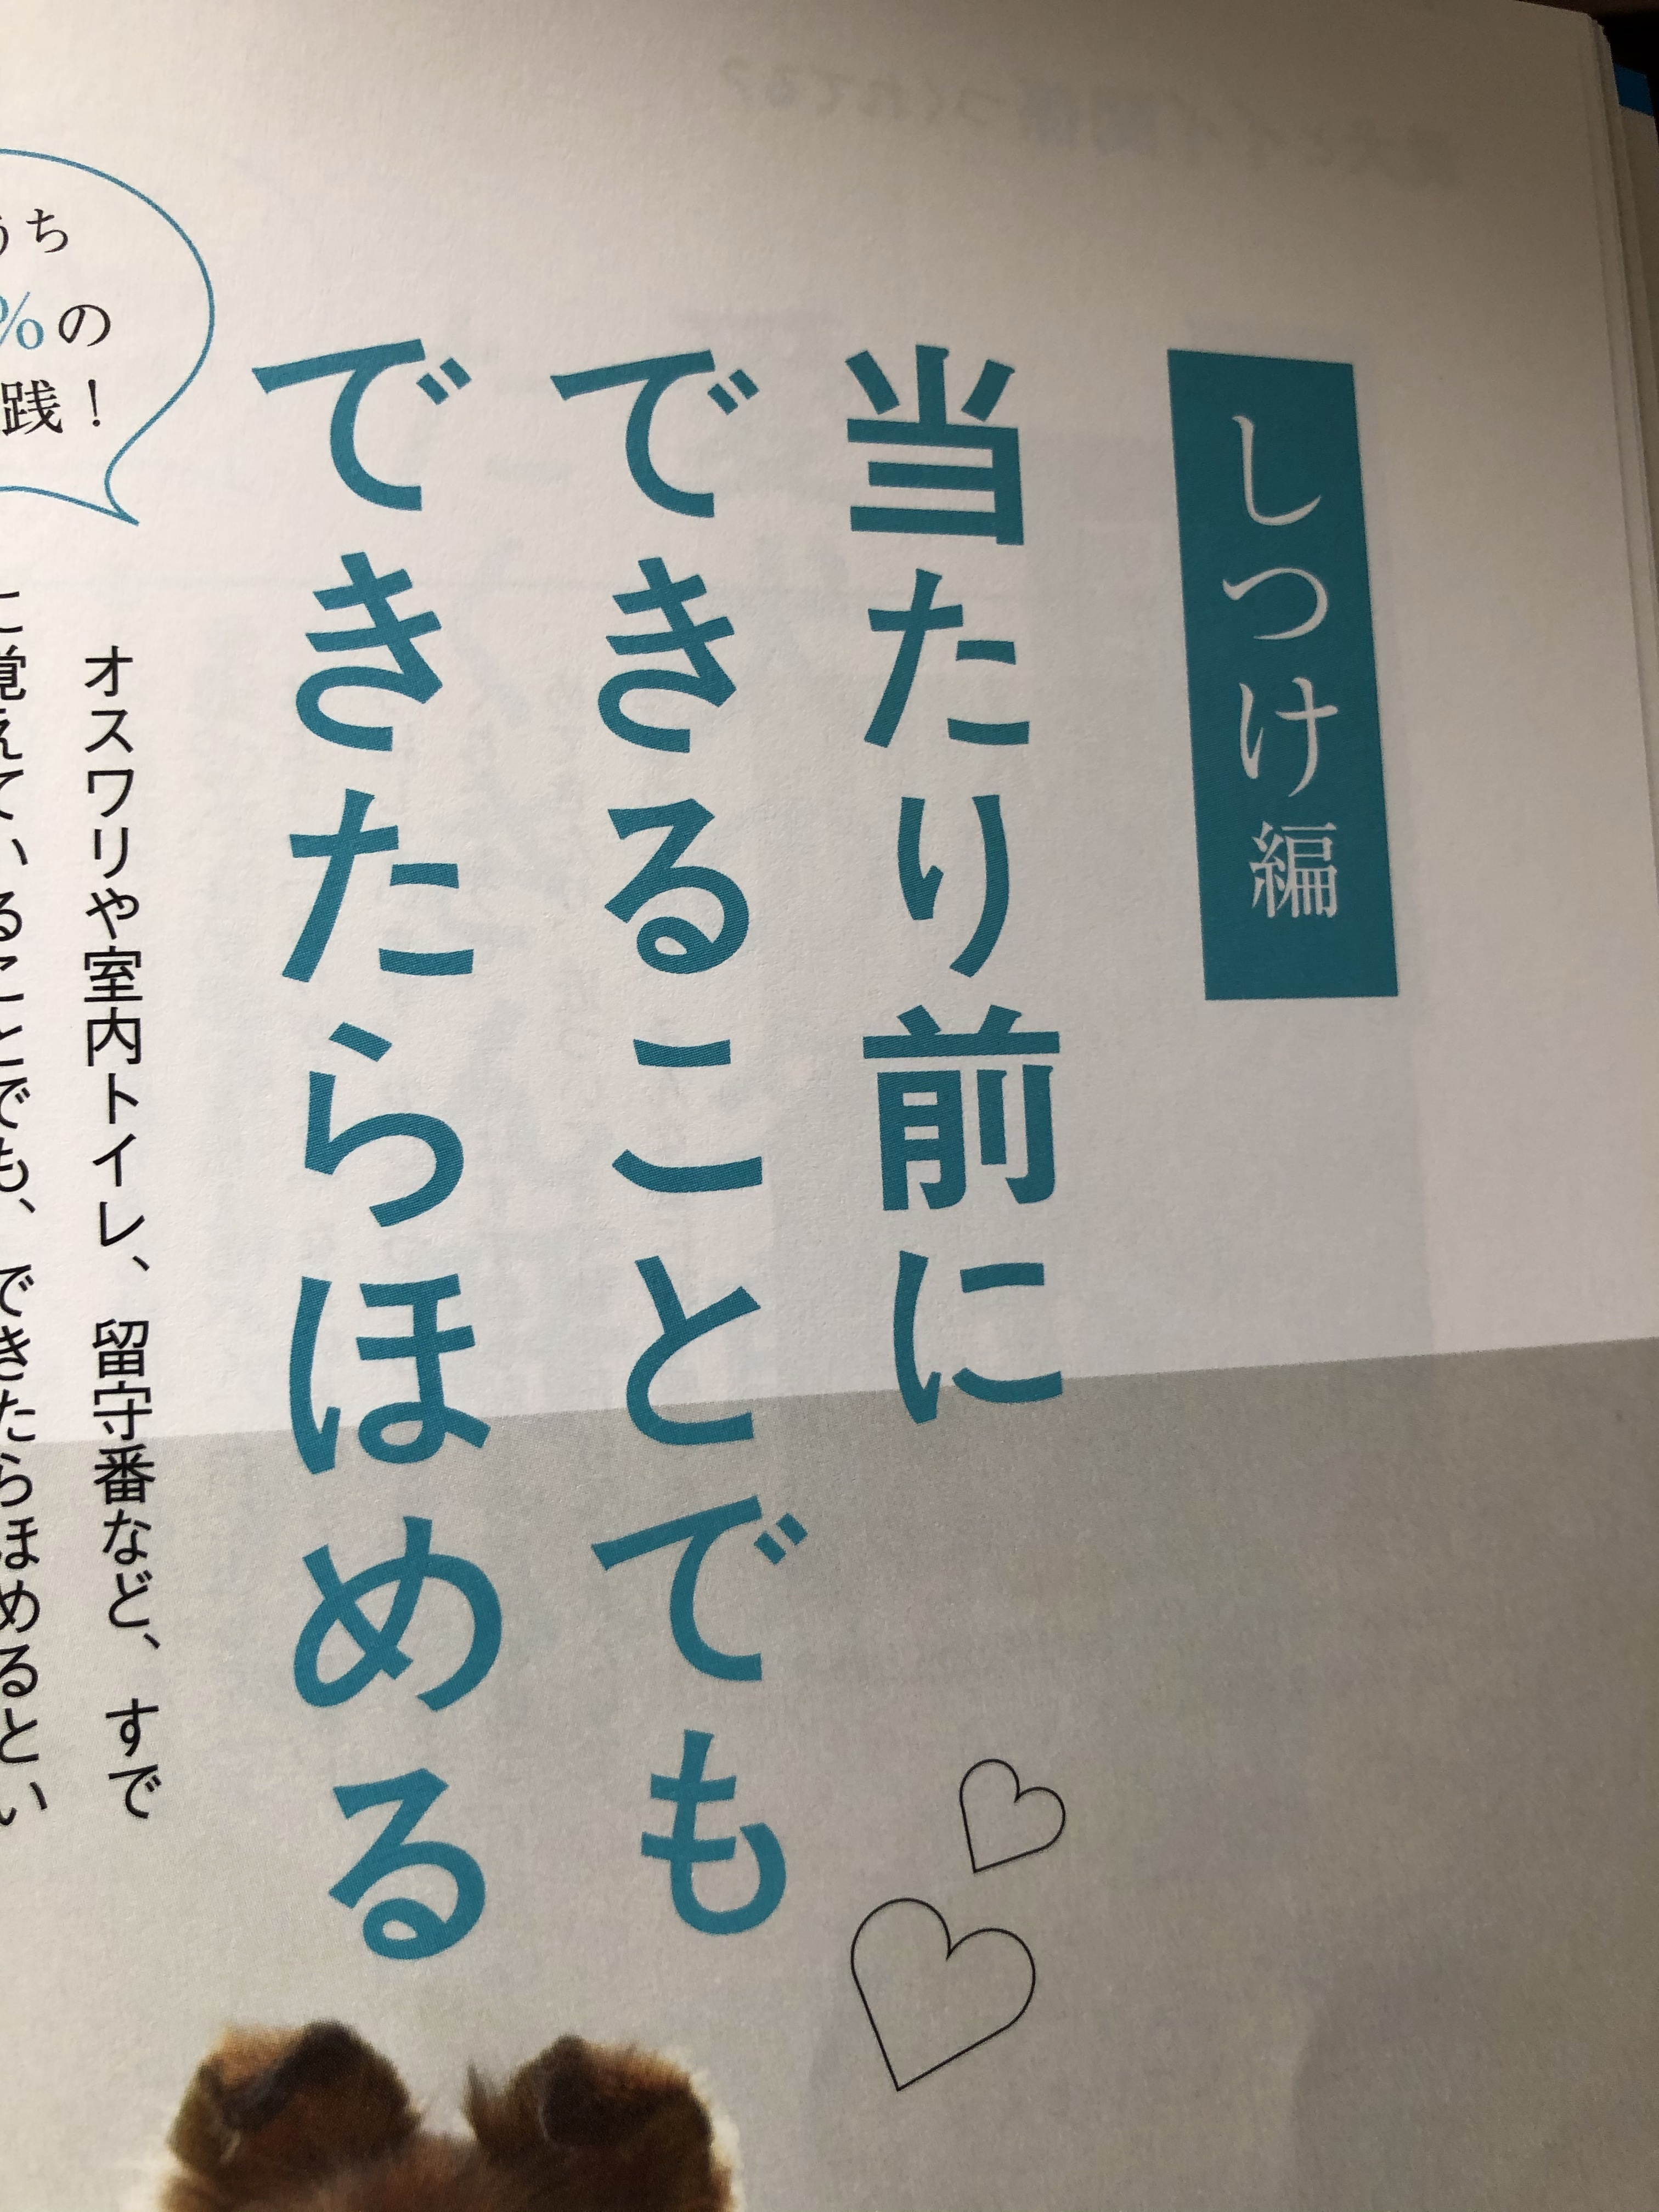 しつけ編
当たり前に
できることでも
できたらほめる
うち
%の
践！
オスワリや室内トイレ、留守番など、すで
に覚えていることでも、できたらほめるとい